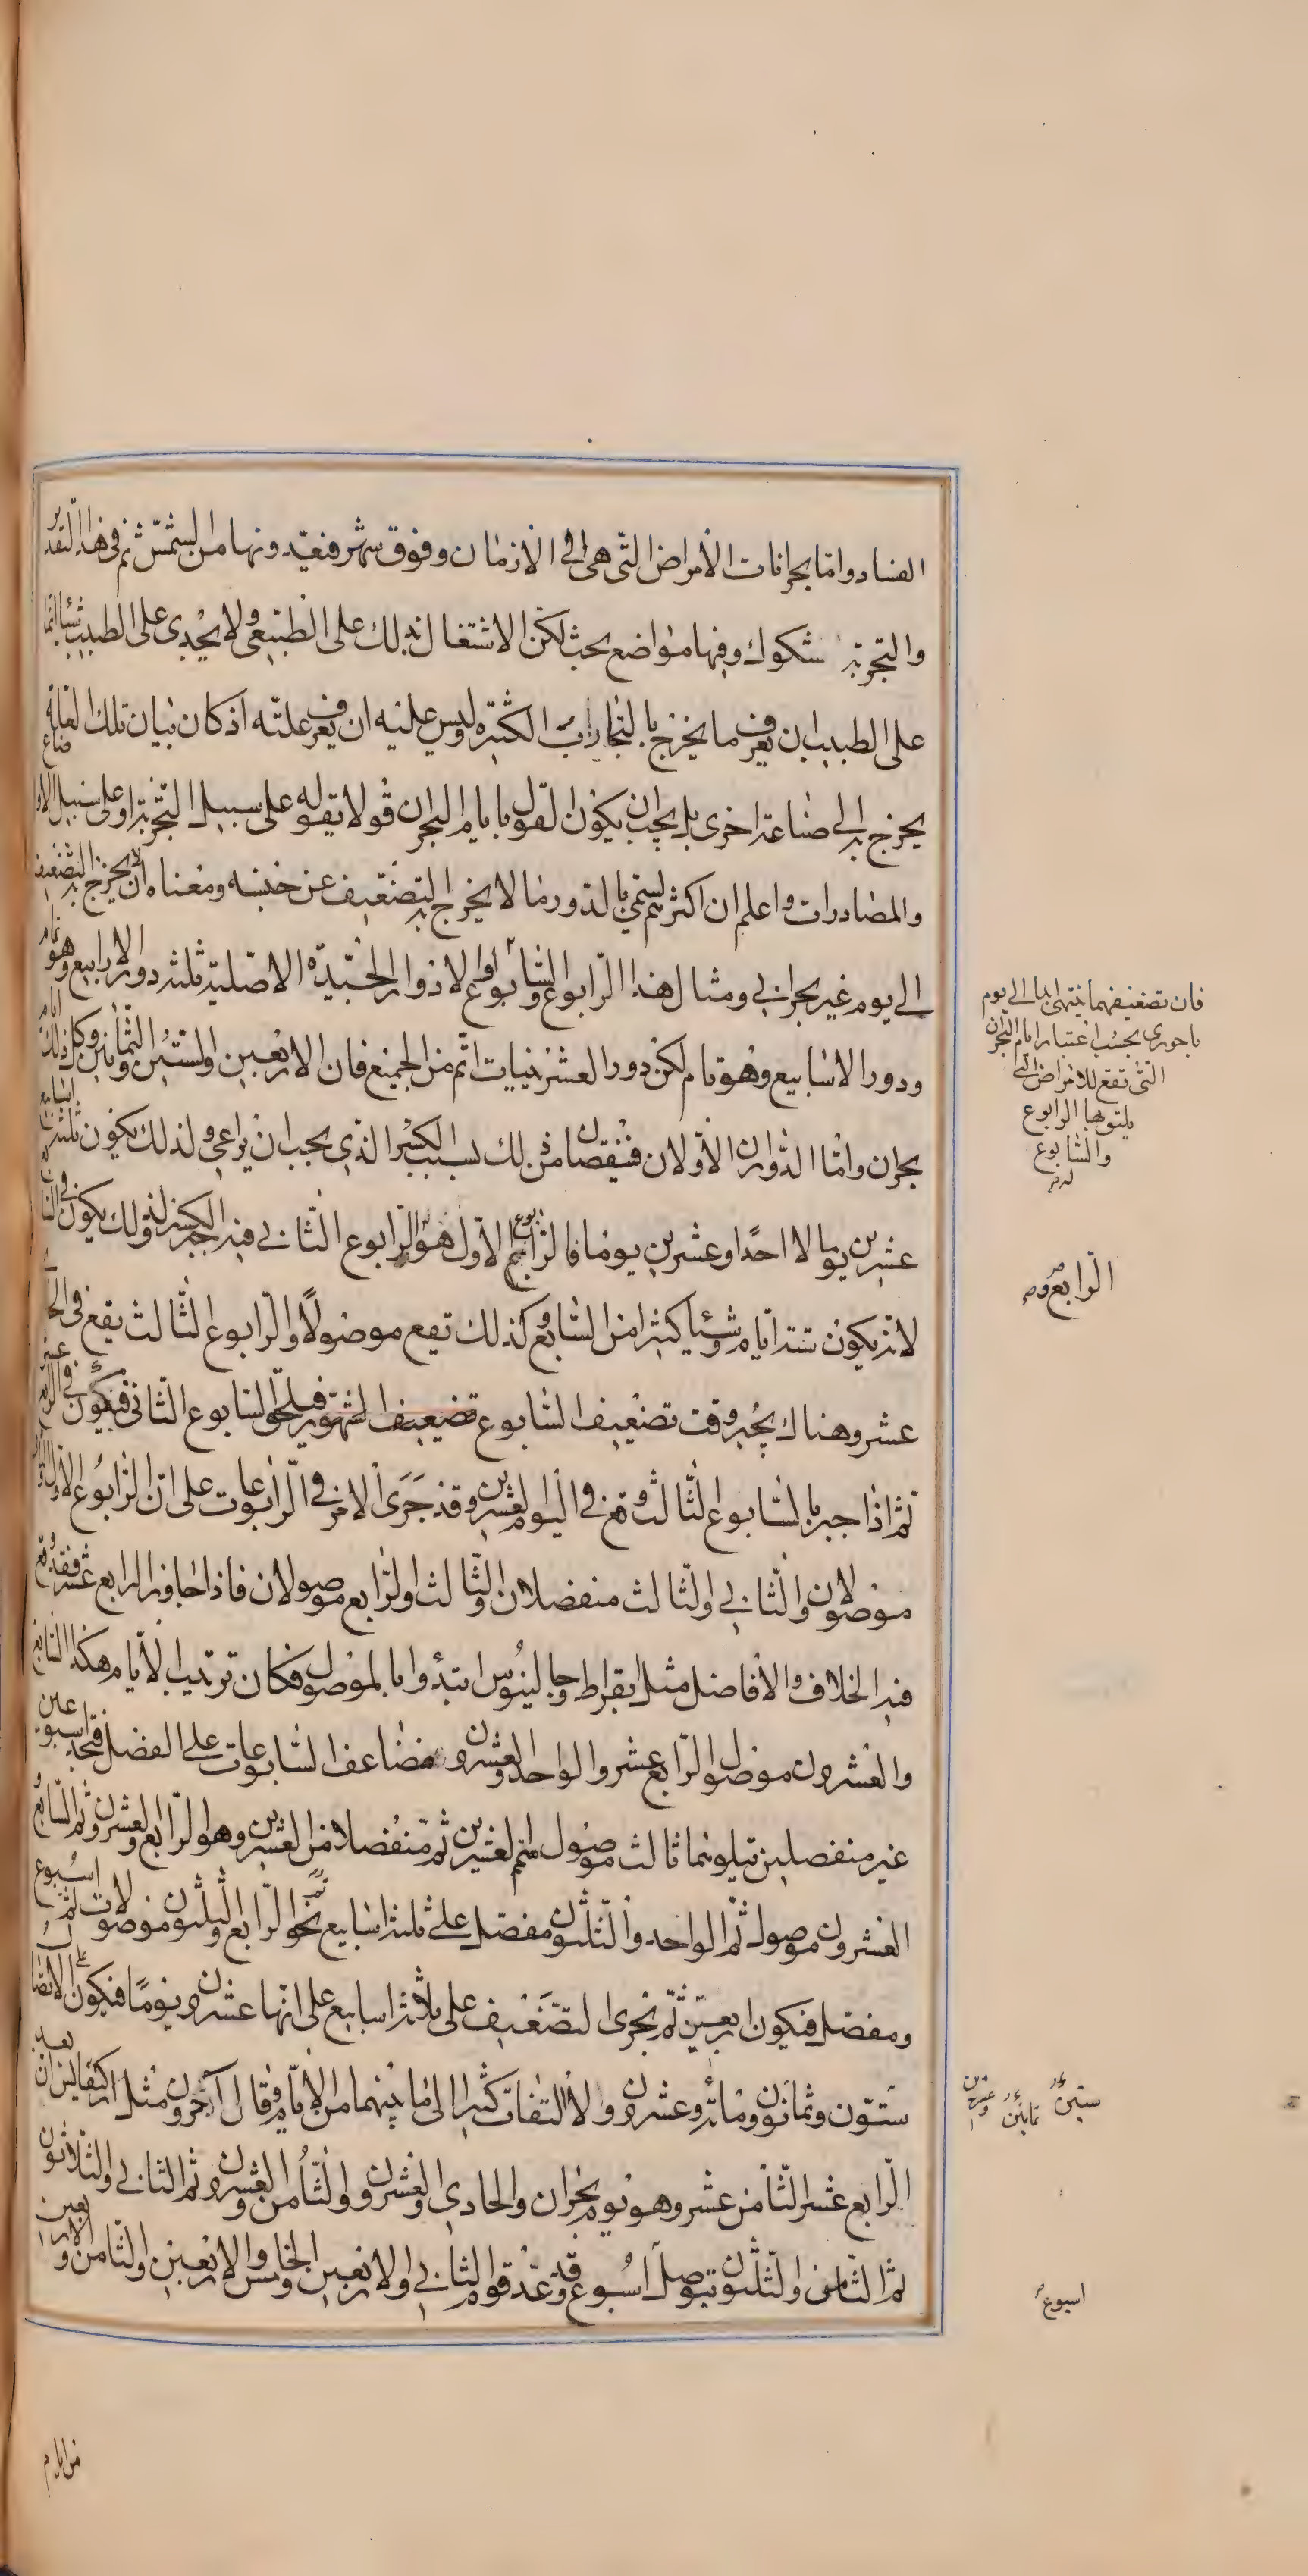 الفساد واما بحرانات الأمراض التي هي في الازمان وفوق شهر فتعتد ونها من الشمس ثم في هذا التقدير
والتجربة شكوك وفيها مواضع بحث لكن الاشتغال بذلك على الطبيعي ولا يجدى على الطبيب شيئا انما
على الطبيب ان يعرف ما يخرج بالتجارب الكثيرة وليس عليه ان يعرف علته اذ كان بيان تلك العلة
يخرج به الى صناعة اخرى بل يجب ان يكون القول بايام البحران قولا يقوله على سبيل التجربة او على سبيل
والمصادرات واعلم ان اكثر ما يسمى بالدور ما لا يخرج به التضعيف عن جنسه ومعناه ان لا يخرج به التضعيف
الى يوم غير بحراني ومثال هذا الرابوع والسابوع والادوار الجيدة الاصلية ثلثة دور الارابيع وهو تام
ودور الاسابيع وهو تام لكن دور العشرينيات اتم من الجميع فان الاربعين والستين والثمانين وكل ذلك ايام
بحران واما الدوران الأولان فينقصان من ذلك بسبب الكسر الذي يجب ان يراعى ولذلك يكون ثلثة اسابيع
عشرين يوما لا احدا وعشرين يوما فالرابوع الاول هو الرابع والرابوع الثاني فيه جبر الكسر لذلك يكون في
لانه يكون ستة أيام وشيئا كثيرا من السابع وكذلك يقع موصولا والرابوع الثالث يقع في الحادى
عشر وهناك يجبر وقت تضعيف السابوع تضعيف الشهور فيلحق السابوع الثانى فيكون في الرابع عشر
ثم اذا جبر بالسابوع الثالث وقع في اليوم العشرين وقد جرى الامر في الرابوعات على ان الرابوع الاول والثاني
موصولان والثاني والثالث منفصلان والثالث والرابع موصولان فاذا جاوز الرابع عشر فقد وقع
فيه الخلاف والأفاضل مثل بقراط وجالينوس ابتدأوا بالموصول فكان ترتيب الأيام هكذا السابع
والعشرون موصول والرابع عشر والواحد والعشرون مضاعف السابوعات على الفصل فتجد اسبوعين
غير منفصلين يتلوهما ثالث موصول اتم العشرين ثم منفصلا من العشرين وهو الرابع والعشرون ثم السابع
العشرون موصول ثم الواحد والثلثون مفصل على ثلثة اسابيع نحو الرابع والثلثون موصولات ثم اسبوع
ومفصل فيكون اربعين ثم يجرى التضعيف على ثلاثة اسابيع على انها عشرون يوما فيكون على الاتصال
ستون وثمانون ومائة وعشرون ولا التفات كثيرا الى ما بينهما من الأيام وقال آخرون مثل اركيغانيس ان بعد
الرابع عشر الثامن عشر وهو يوم بحران والحادى والعشرون والثامن والعشرون ثم الثاني والثلاثون
ثم الثامن والثلثون بتوصل اسبوع وقد عد قوم الثاني والاربعين والخامس والاربعين والثامن والاربعين
فان تضعيفهما ينتهى ابدا الى يوم
باحورى بحسب اعتبار ايام البحران
التي تقع للامراض التي
يليق بها الرابوع
والسابوع
الرابع و
ستين ثمانين وعشرين
اسبوع
من ايام